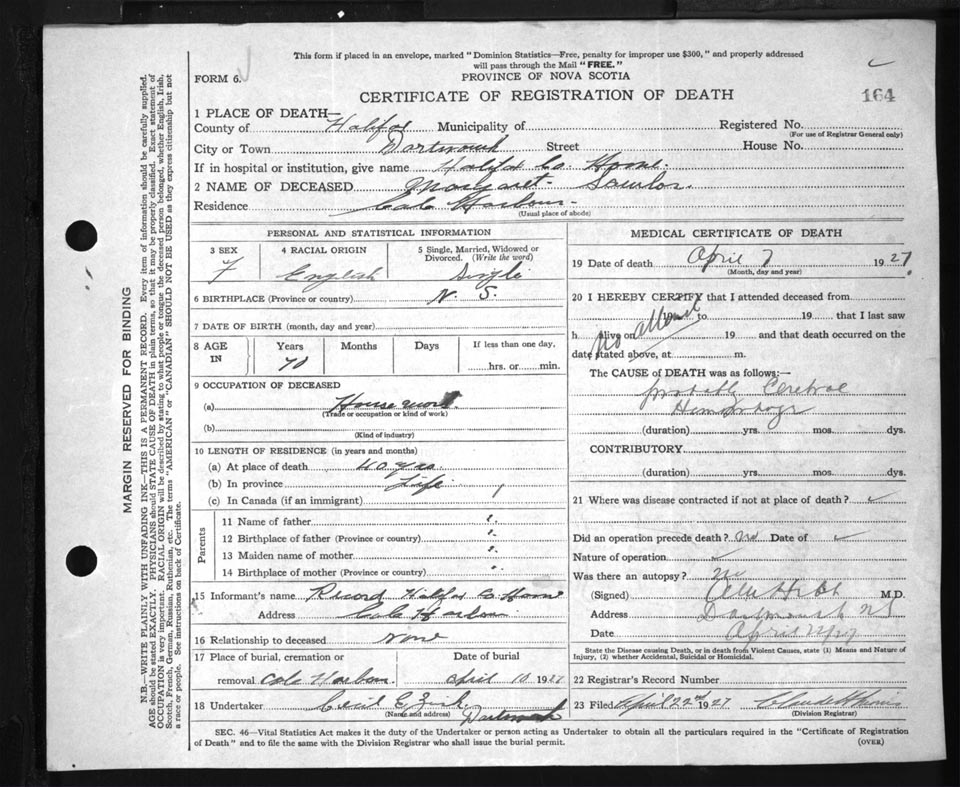 This form if placed in an envelope, marked "Dominion Statistics—Free, penalty for improper use $300," and properly addressed
will pass through the Mail "FREE."
FORM 6.
PROVINCE OF NOVA SCOTIA
CERTIFICATE OF REGISTRATION OF DEATH
164
1 PLACE OF DEATH—
County of Halifax Municipality of Registered No.
(For use of Registrar General only)
City or Town Dartmouth Street House No.
If in hospital or institution, give name Halifax Co. Home.
2 NAME OF DECEASED Margaret Sawlor.
Residence Cole Harbour.
(Usual place of abode)
PERSONAL AND STATISTICAL INFORMATION
3 SEX 4 RACIAL ORIGIN 5 Single, Married, Widowed or
Divorced. (Write the word)
F English Single
6 BIRTHPLACE (Province or country) N. S.
7 DATE OF BIRTH (month, day and year)
8 AGE IN Years Months Days If less than one day,
70 hrs. or min.
9 OCCUPATION OF DECEASED
(a) House work
(Trade or occupation or kind of work)
(b)
(Kind of industry)
10 LENGTH OF RESIDENCE (in years and months)
(a) At place of death 40 yrs
(b) In province Life
(c) In Canada (if an immigrant)
Parents
11 Name of father
12 Birthplace of father (Province or country)
13 Maiden name of mother
14 Birthplace of mother (Province or country)
15 Informant's name Record Halifax Co Home
Address Cole Harbour
16 Relationship to deceased None
17 Place of burial, cremation or Date of burial
removal Cole Harbour April 10 1927
18 Undertaker Cecil E. Zink
(Name and address) Dartmouth
MEDICAL CERTIFICATE OF DEATH
19 Date of death April 7 1927.
(Month, day and year)
20 I HEREBY CERTIFY that I attended deceased from
19 to 19 that I last saw
h alive on 19 and that death occurred on the
No
date stated above, at m.
The CAUSE of DEATH was as follows:—
probably Cerebral
Hemorrhage
(duration) yrs. mos. dys.
CONTRIBUTORY
(duration) yrs. mos. dys.
21 Where was disease contracted if not at place of death?
Did an operation precede death? No Date of
Nature of operation
Was there an autopsy? No
(Signed) M.D.
Address Dartmouth NS
Date April
State the Disease causing Death, or in death from Violent Causes, state (1) Means and Nature of
Injury, (2) whether Accidental, Suicidal or Homicidal.
22 Registrar's Record Number
23 Filed April 22nd 1927
(Division Registrar)
SEC. 46—Vital Statistics Act makes it the duty of the Undertaker or person acting as Undertaker to obtain all the particulars required in the "Certificate of Registration
of Death" and to file the same with the Division Registrar who shall issue the burial permit. (OVER)
MARGIN RESERVED FOR BINDING
N.B.—WRITE PLAINLY WITH UNFADING INK—THIS IS A PERMANENT RECORD. Every item of information should be carefully supplied.
AGE should be stated EXACTLY. PHYSICIANS should STATE CAUSE OF DEATH in plain terms, so that it may be properly classified. Exact statement of
OCCUPATION is very important. RACIAL ORIGIN will be described by stating to what people or tongue the deceased person belonged, whether English, Irish,
Scotch, French, German, Russian, Ruthenian, etc. The terms "AMERICAN" or "CANADIAN" SHOULD NOT BE USED as they express citizenship but not
a race or people. See instructions on back of Certificate.